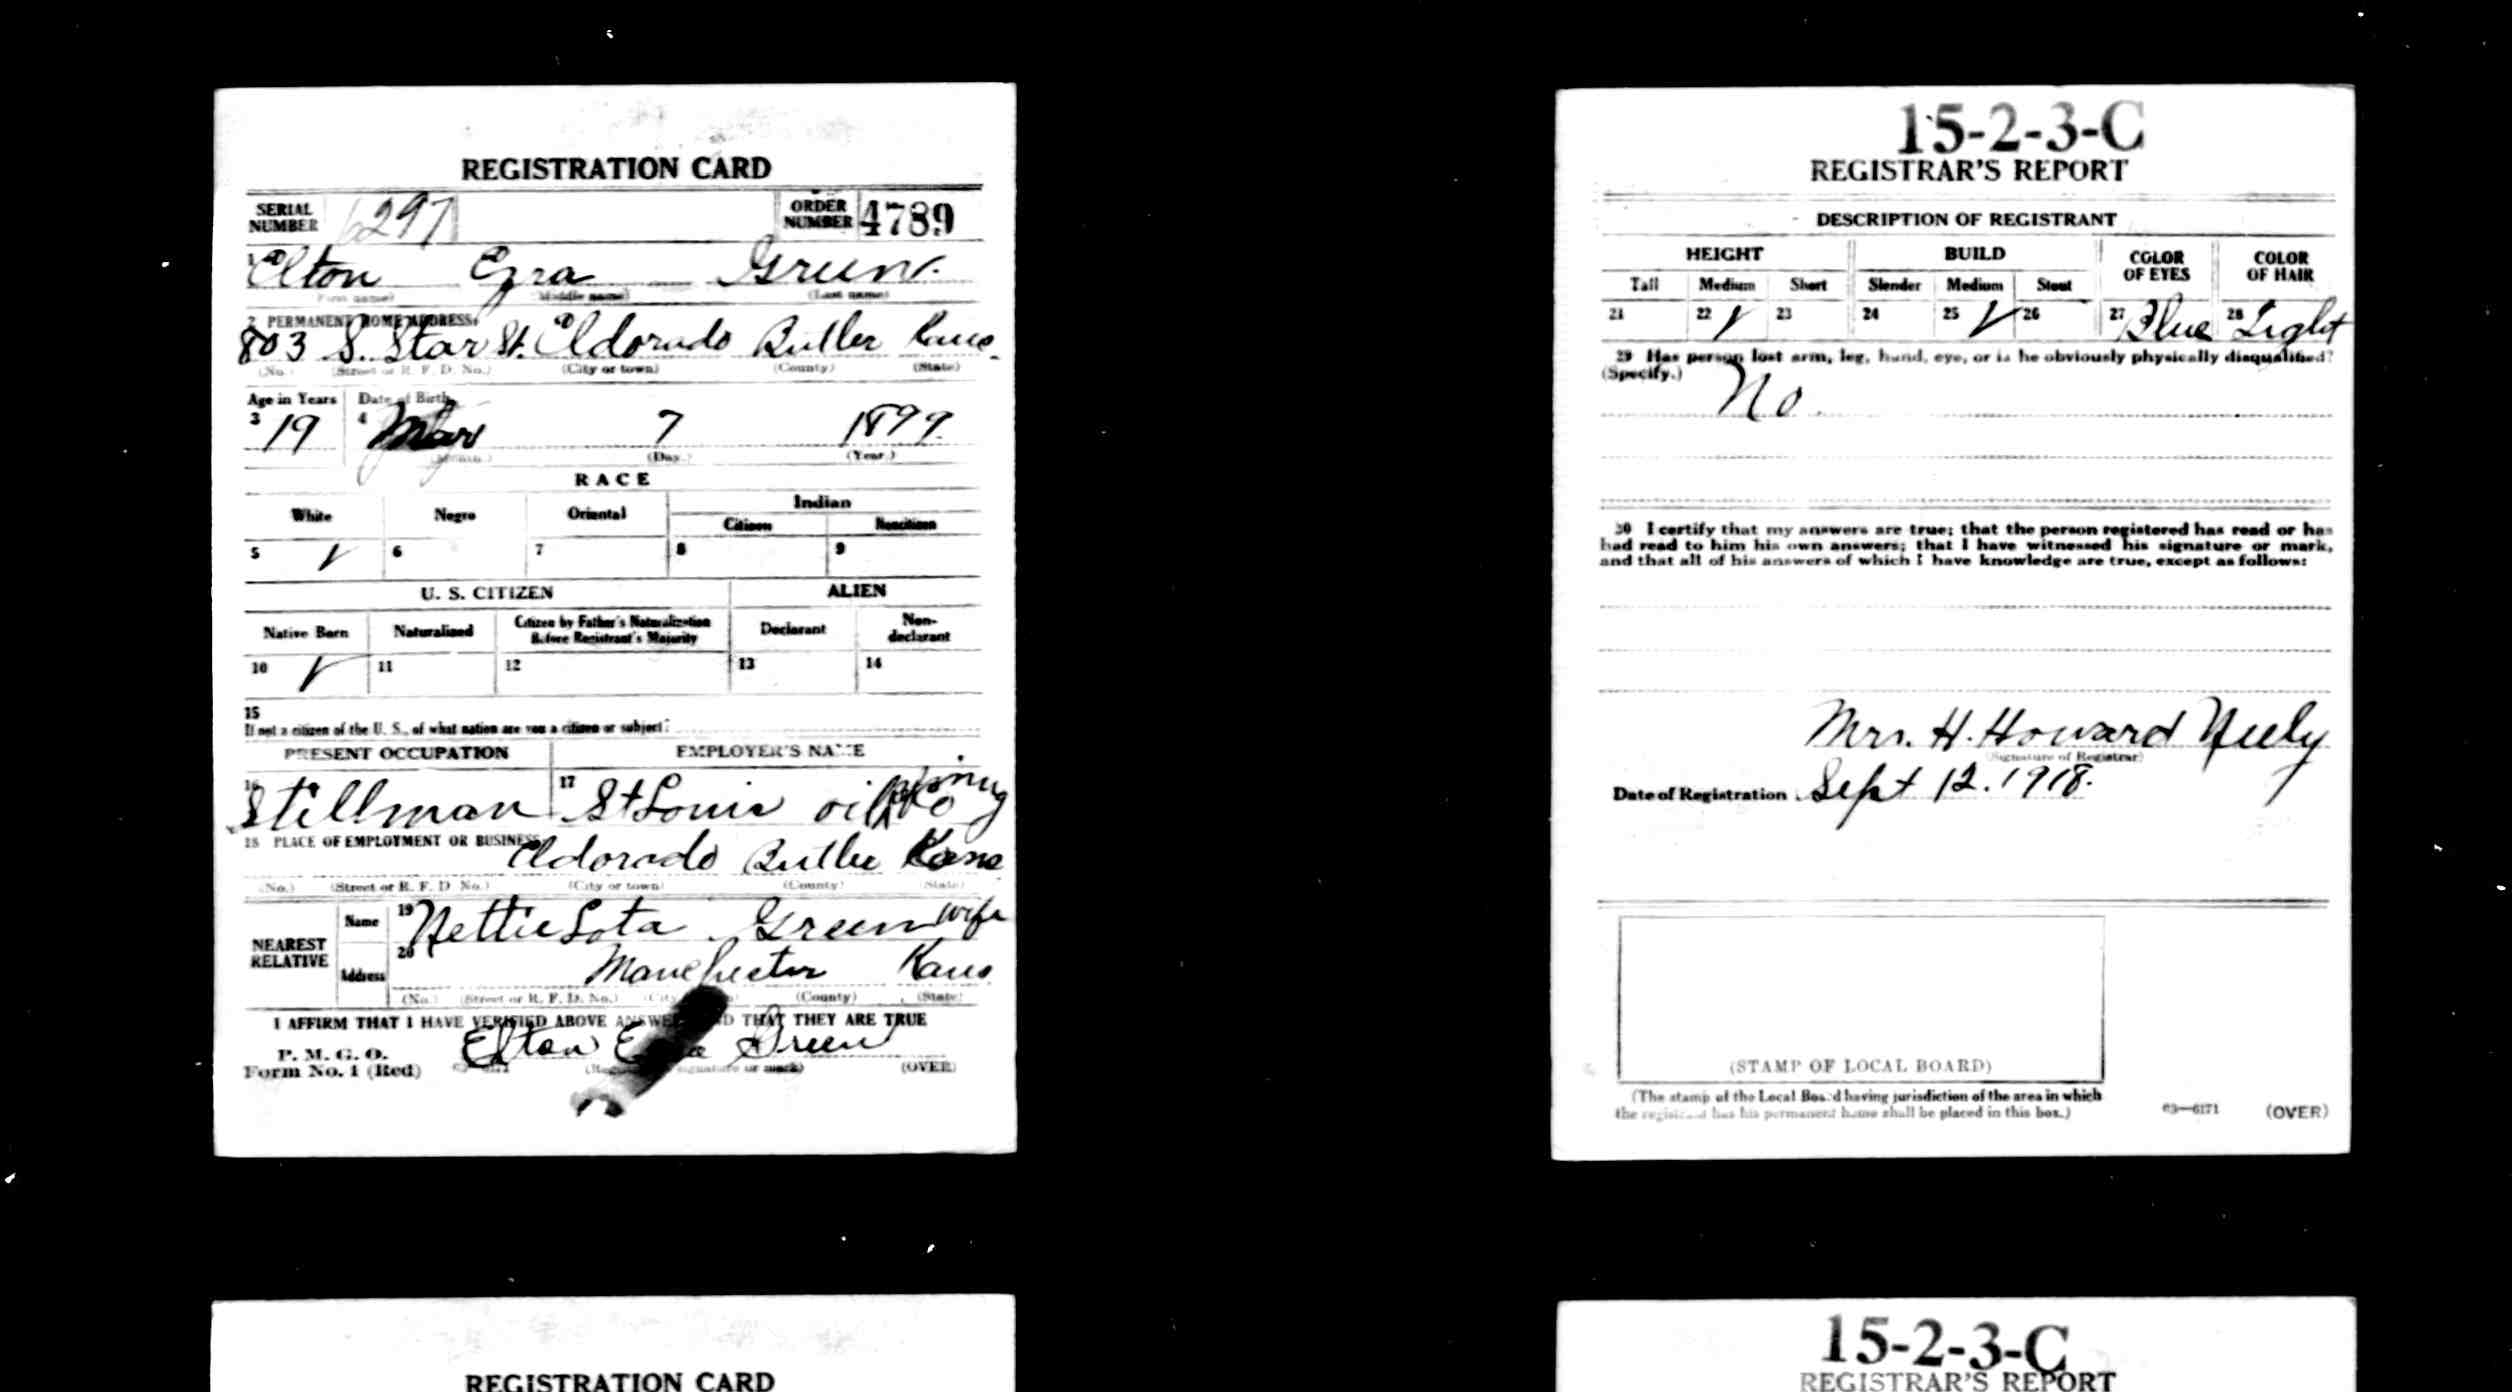 REGISTRATION CARD
SERIAL NUMBER 6297 ORDER NUMBER 4789
1 Elton Ezra Green
(First name) (Middle name) (Last name)
2 PERMANENT HOME ADDRESS:
803 S. Star St. Eldorado Butler Kans.
(No.) (Street or R. F. D. No.) (City or town) (County) (State)
Age in Years Date of Birth
3 19 4 7 1899
(Month.) (Day.) (Year.)
RACE
White Negro Oriental Indian
Citizen Noncitizen
5 ✓ 6 7 8 9
U. S. CITIZEN ALIEN
Native Born Naturalized Citizen by Father's Naturalization Before Registrant's Majority Declarant Non-declarant
10 ✓ 11 12 13 14
15
If not a citizen of the U. S., of what nation are you a citizen or subject?
PRESENT OCCUPATION EMPLOYER'S NAME
16 Stillman 17 St Louis oil Co
18 PLACE OF EMPLOYMENT OR BUSINESS:
Eldorado Butler Kans
(No.) (Street or R. F. D. No.) (City or town) (County) (State)
NEAREST RELATIVE Name 19 Nettie Lota Green wife
Address 20 Manchester Kans
(No.) (Street or R. F. D. No.) (City (County) (State)
I AFFIRM THAT I HAVE VERIFIED ABOVE ANSWERS AND THAT THEY ARE TRUE
P. M. G. O.
Form No. 1 (Red) Elton Ezra Green
(Registrant's signature or mark) (OVER)
15-2-3-C
REGISTRAR'S REPORT
DESCRIPTION OF REGISTRANT
HEIGHT BUILD COLOR OF EYES COLOR OF HAIR
Tall Medium Short Slender Medium Stout
21 22 ✓ 23 24 25 ✓ 26 27 Blue 28 Light
29 Has person lost arm, leg, hand, eye, or is he obviously physically disqualified?
(Specify.) No.
30 I certify that my answers are true; that the person registered has read or has
had read to him his own answers; that I have witnessed his signature or mark,
and that all of his answers of which I have knowledge are true, except as follows:
Mrs. H. Howard Neely
(Signature of Registrar)
Date of Registration Sept 12. 1918.
(STAMP OF LOCAL BOARD)
(The stamp of the Local Board having jurisdiction of the area in which
the registrant has his permanent home shall be placed in this box.)
03—6171 (OVER)
REGISTRATION CARD
15-2-3-C
REGISTRAR'S REPORT